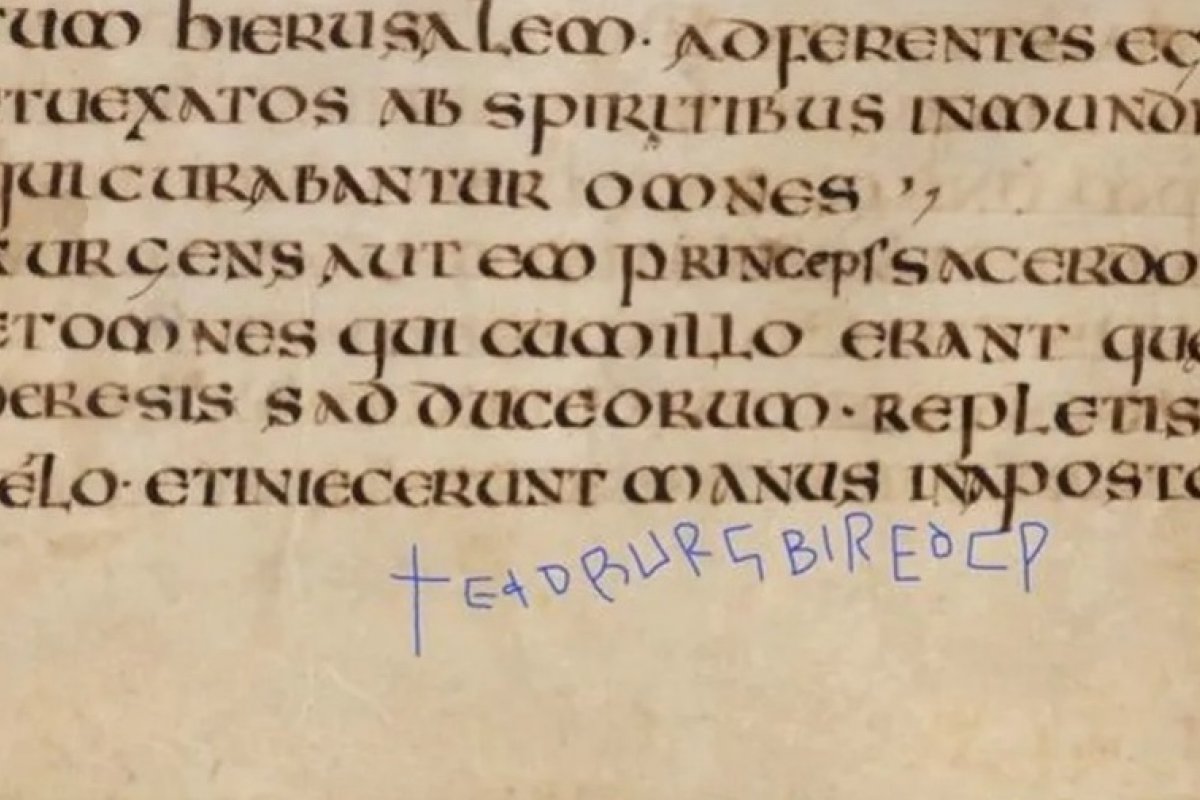 TUM hIERUSALEM · ADFERENTES EG
TUEXATOS AB SPIRITIBUS INMUNDI
QUI CURABANTUR OMNES ,,
URGENS AUTEM PRINCEPS SACERDO
ETOMNES QUI CUMILLO ERANT QUE
ERESIS SADDUCEORUM · REPLETIS
ELO · ETINIECERUNT MANUS INAPOSTO
+EADBURG BIREð CP